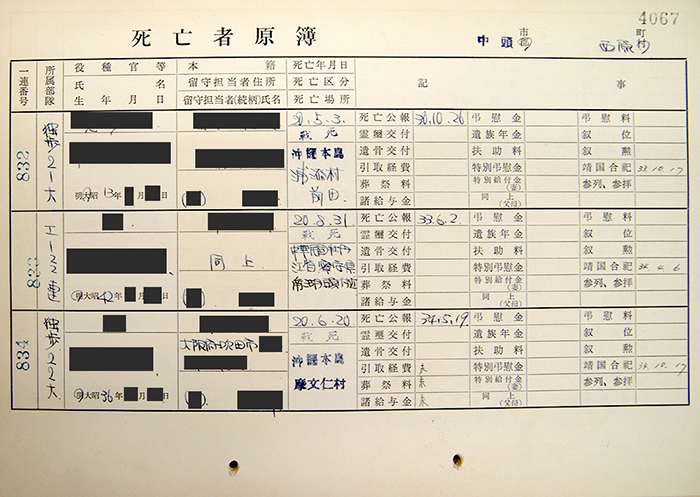 4067
死亡者原簿
中頭 市 郡
西原 町 村
一連番号 所属部隊 役種官等 本籍 死亡年月日 記事
氏名 留守担当者住所 死亡区分
生年月日 留守担当者(続柄)氏名 死亡場所
832 独歩21大
明大昭13年 月 日
20.5.3.
戦死
沖縄本島
浦添村
前田
死亡公報 30.10.26 弔慰金 弔慰料
霊璽交付 遺族年金 叙位
遺骨交付 扶助料 叙勲
引取経費 特別弔慰金 靖国合祀 33.10.17
葬祭料 特別給付金(妻) 参列、参拝
諸給与金 同上(父母)
833
明大昭42年 月 日
同上
20.8.31
戦死
死亡公報 33.6.2. 弔慰金 弔慰料
霊璽交付 遺族年金 叙位
遺骨交付 扶助料 叙勲
引取経費 特別弔慰金 靖国合祀
葬祭料 特別給付金(妻) 参列、参拝
諸給与金 同上(父母)
834 独歩22大
明大昭36年 月 日
大阪府吹田市
20.6.20
戦死
沖縄本島
摩文仁村
死亡公報 34.5.19. 弔慰金 弔慰料
霊璽交付 遺族年金 叙位
遺骨交付 扶助料 叙勲
引取経費 未 特別弔慰金 靖国合祀 34.10.17
葬祭料 未 特別給付金(妻) 参列、参拝
諸給与金 未 同上(父母)